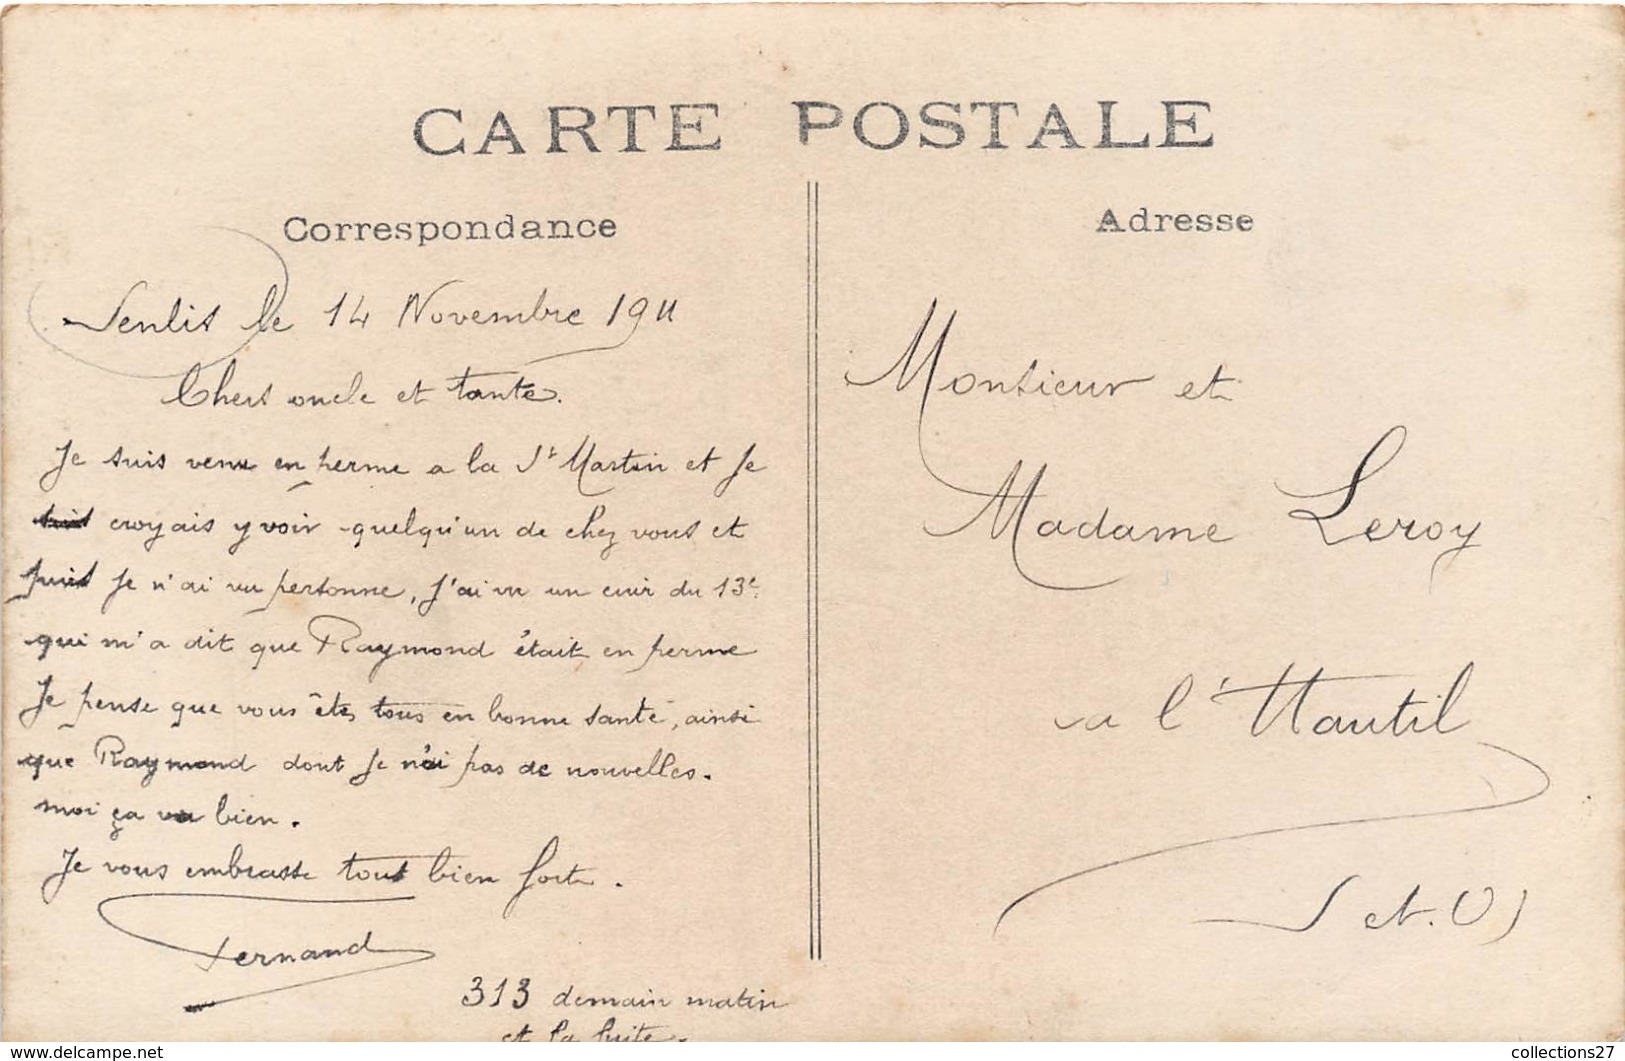 CARTE POSTALE
Correspondance
Senlis le 14 Novembre 1911
Chers oncle et tante.
Je suis venu en perme a la St Martin et Je
croyais y voir quelqu'un de chez vous et
puis Je n'ai vu personne, J'ai vu un cuir du 13e
qui m'a dit que Raymond était en perme
Je pense que vous êtes tous en bonne santé, ainsi
que Raymond dont Je n'ai pas de nouvelles.
moi ça va bien.
Je vous embrasse tous bien fort.
Fernand
313 demain matin
et la fuite.
Adresse
Monsieur et
Madame Leroy
a l'Hautil
S et. O)
www.delcampe.net
collections27